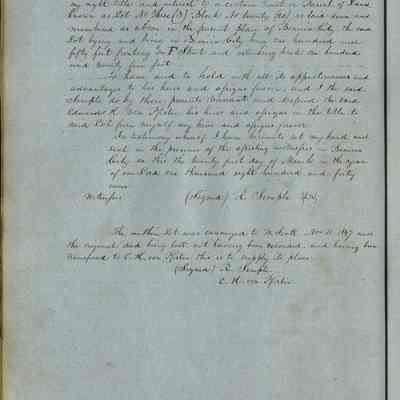 my right title and interest to a certain tract or Parcel of Land
known as Lot No Three (3) Block No twenty as laid down and
numbered as above in the present plan of Benicia City, the said
Lot lying and being in Benicia City one hundred and
fifty feet fronting on F Street and extending back one hundred
and twenty five feet
To have and to hold with all its appurtenances and
advantages to his heirs and assigns forever, and I the said
Semple do by these presents Warrant and defend the said
his heirs and assigns in the title to
said Lot from myself my heirs and assigns forever
In testimony whereof I have hereunto set my hand and
seal in the presence of the witnesses in Benicia
City on this the twenty first day of March in the year
of our Lord one thousand eight hundred and forty
Witnesses (Signed) R. Semple
The within Lot was conveyed to Nov 11 1847 and
the original deed being lost not having been recorded, and having been
transferred to C. H. von Pfister this is to supply its place
(Signed) R. Semple
C. H. von Pfister